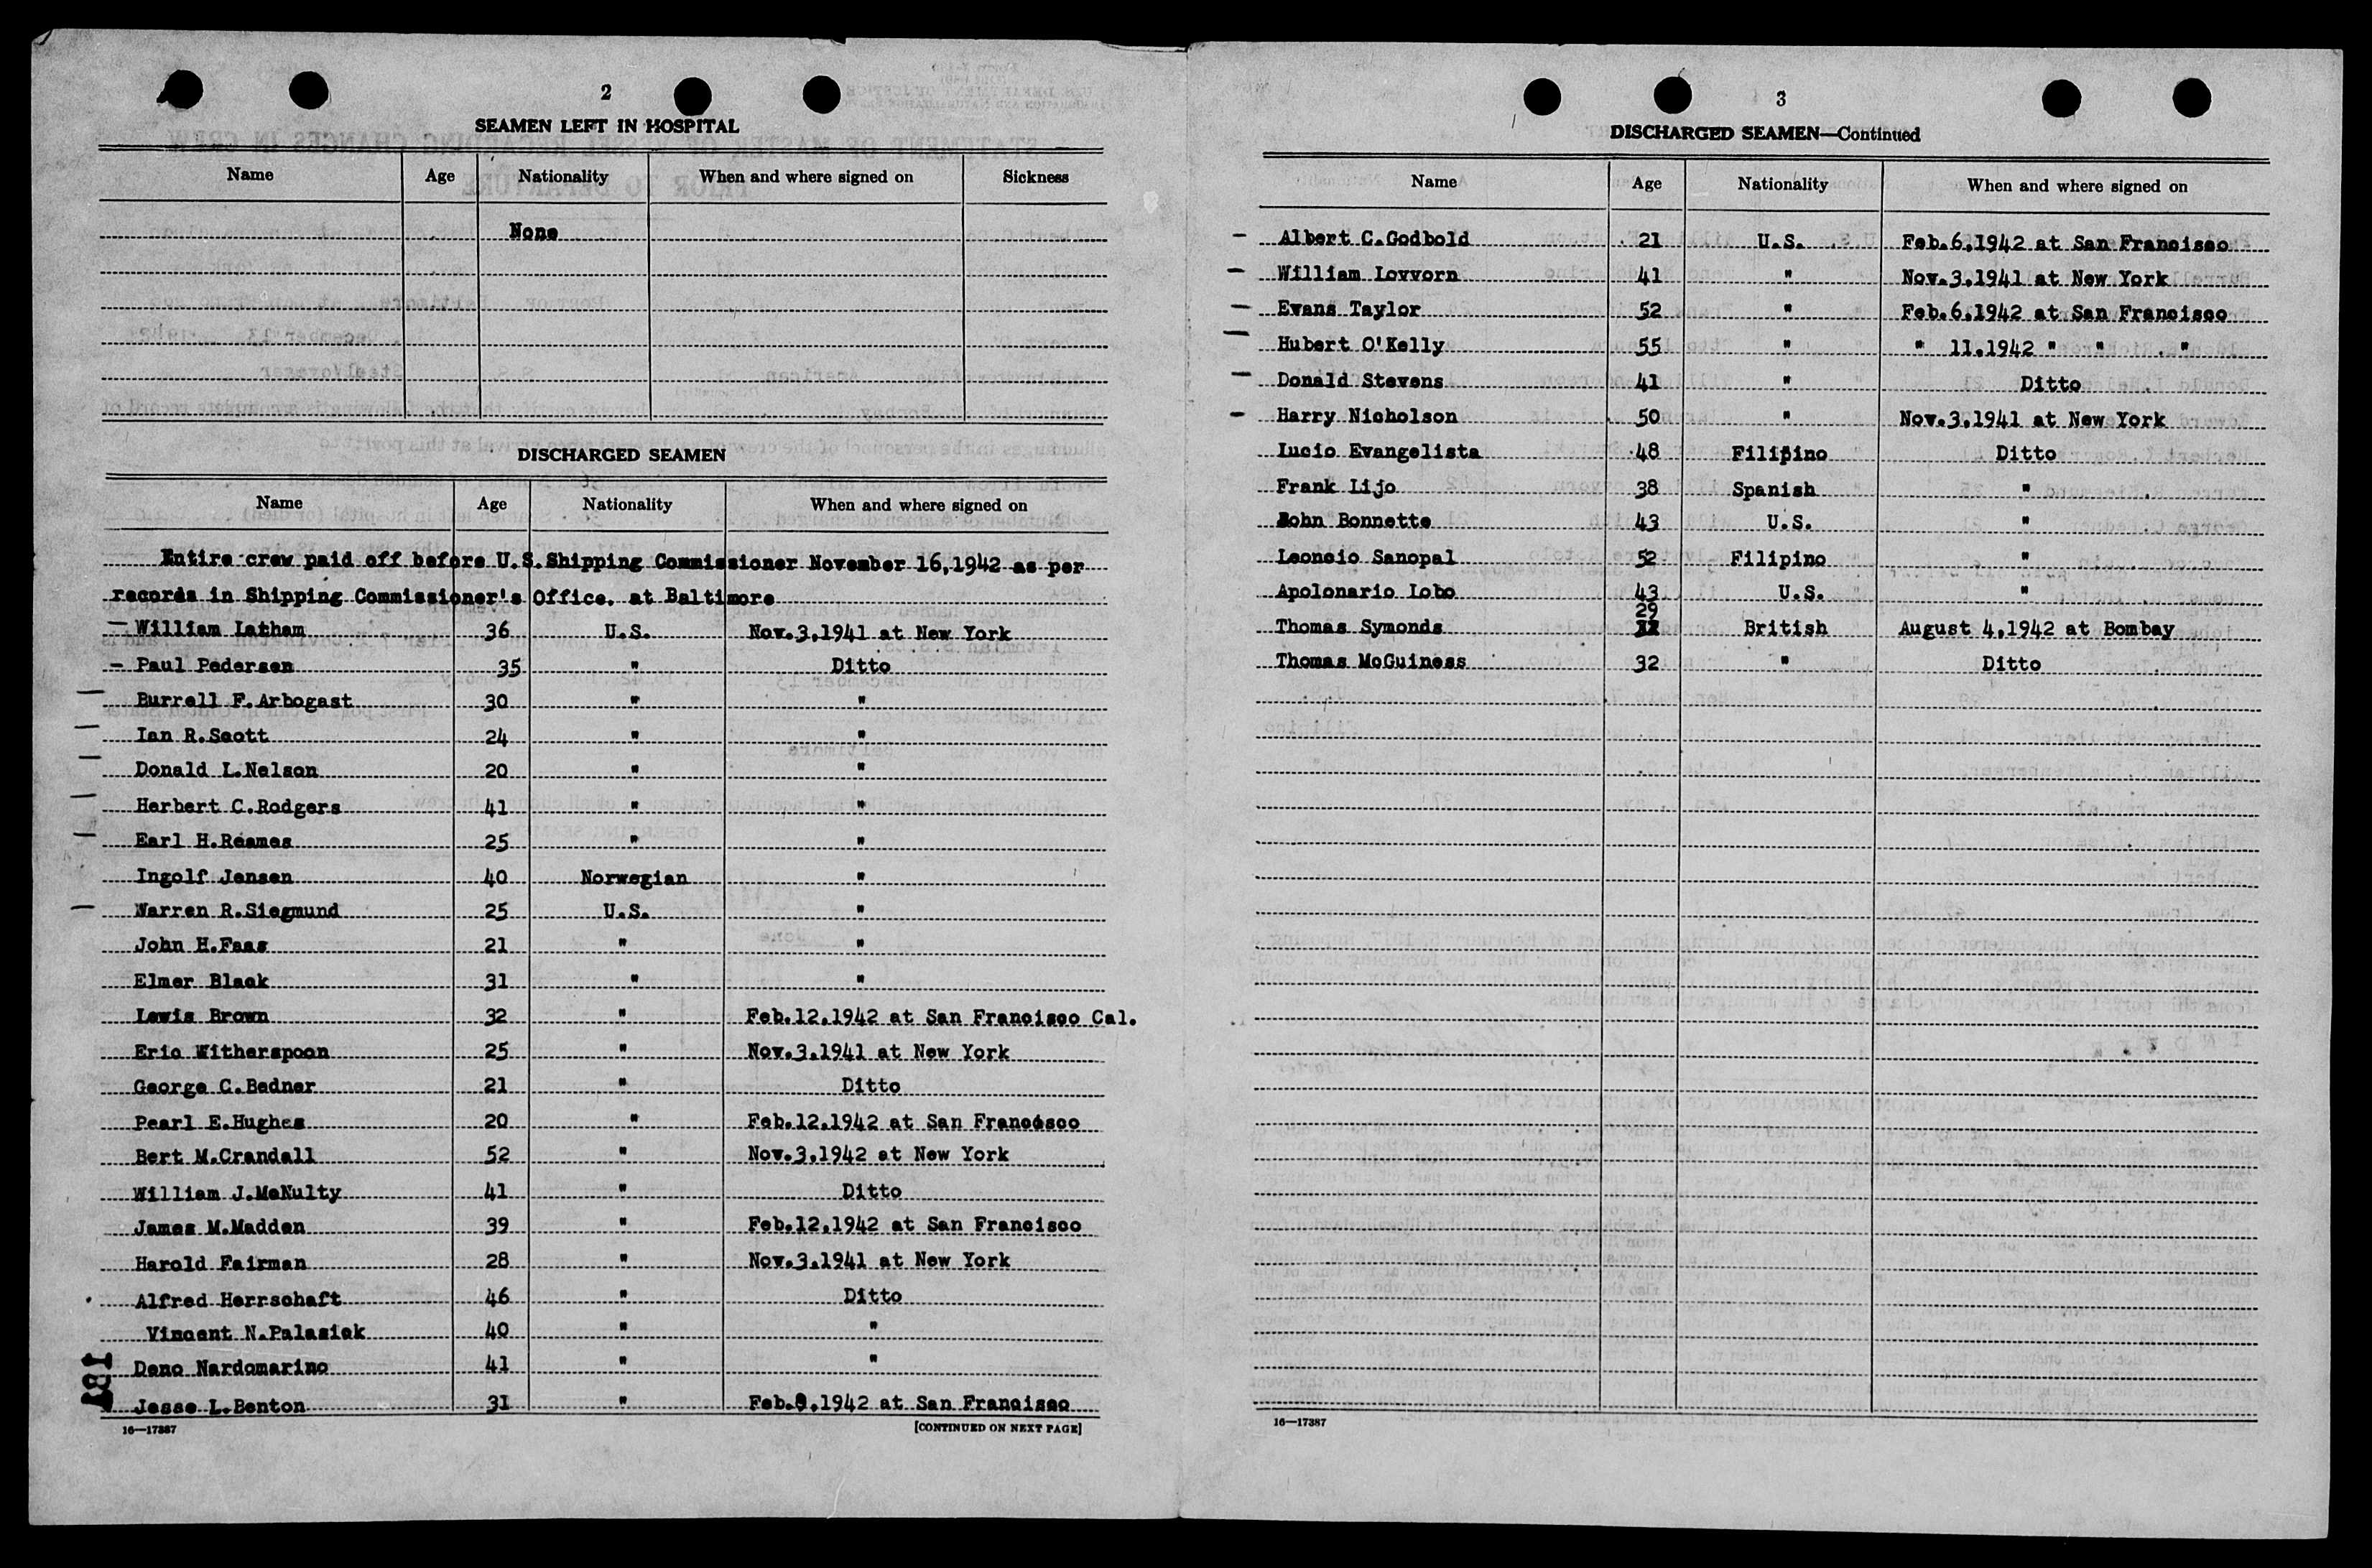 2
SEAMEN LEFT IN HOSPITAL
Name Age Nationality When and where signed on Sickness
None
DISCHARGED SEAMEN
Name Age Nationality When and where signed on
Entire crew paid off before U.S.Shipping Commissioner November 16,1942 as per
records in Shipping Commissioner's Office. at Baltimore
— William Latham 36 U.S. Nov.3,1941 at New York
— Paul Pedersen 35 " Ditto
— Burrell F.Arbogast 30 " "
— Ian R.Scott 24 " "
— Donald L.Nelson 20 " "
— Herbert C.Rodgers 41 " "
— Earl H.Reames 25 " "
Ingolf Jensen 40 Norwegian "
— Warren R.Siegmund 25 U.S. "
John H.Faas 21 " "
Elmer Black 31 " "
Lewis Brown 32 " Feb.12,1942 at San Francisco Cal.
Eric Witherspoon 25 " Nov.3,1941 at New York
George C.Bednar 21 " Ditto
Pearl E.Hughes 20 " Feb.12,1942 at San Francisco
Bert M.Crandall 52 " Nov.3,1942 at New York
William J.McNulty 41 " Ditto
James M.Madden 39 " Feb.12,1942 at San Francisco
Harold Fairman 28 " Nov.3,1941 at New York
Alfred Herrschaft 46 " Ditto
Vincent N.Palasick 40 " "
Deno Nardomarino 41 " "
Jesse L.Benton 31 " Feb.9,1942 at San Francisco
16—17387 [CONTINUED ON NEXT PAGE]
3
DISCHARGED SEAMEN—Continued
Name Age Nationality When and where signed on
— Albert C.Godbold 21 U.S. Feb.6,1942 at San Francisco
— William Lovvorn 41 " Nov.3,1941 at New York
— Evans Taylor 52 " Feb.6,1942 at San Francisco
— Hubert O'Kelly 55 " " 11,1942 " " "
— Donald Stevens 41 " Ditto
— Harry Nicholson 50 " Nov.3,1941 at New York
Lucio Evangelista 48 Filipino Ditto
Frank Lijo 38 Spanish "
John Bonnette 43 U.S. "
Leoncio Sanopal 52 Filipino "
Apolonario Lobo 43 U.S. "
Thomas Symonds 29 British August 4,1942 at Bombay
Thomas McGuiness 32 " Ditto
16—17387